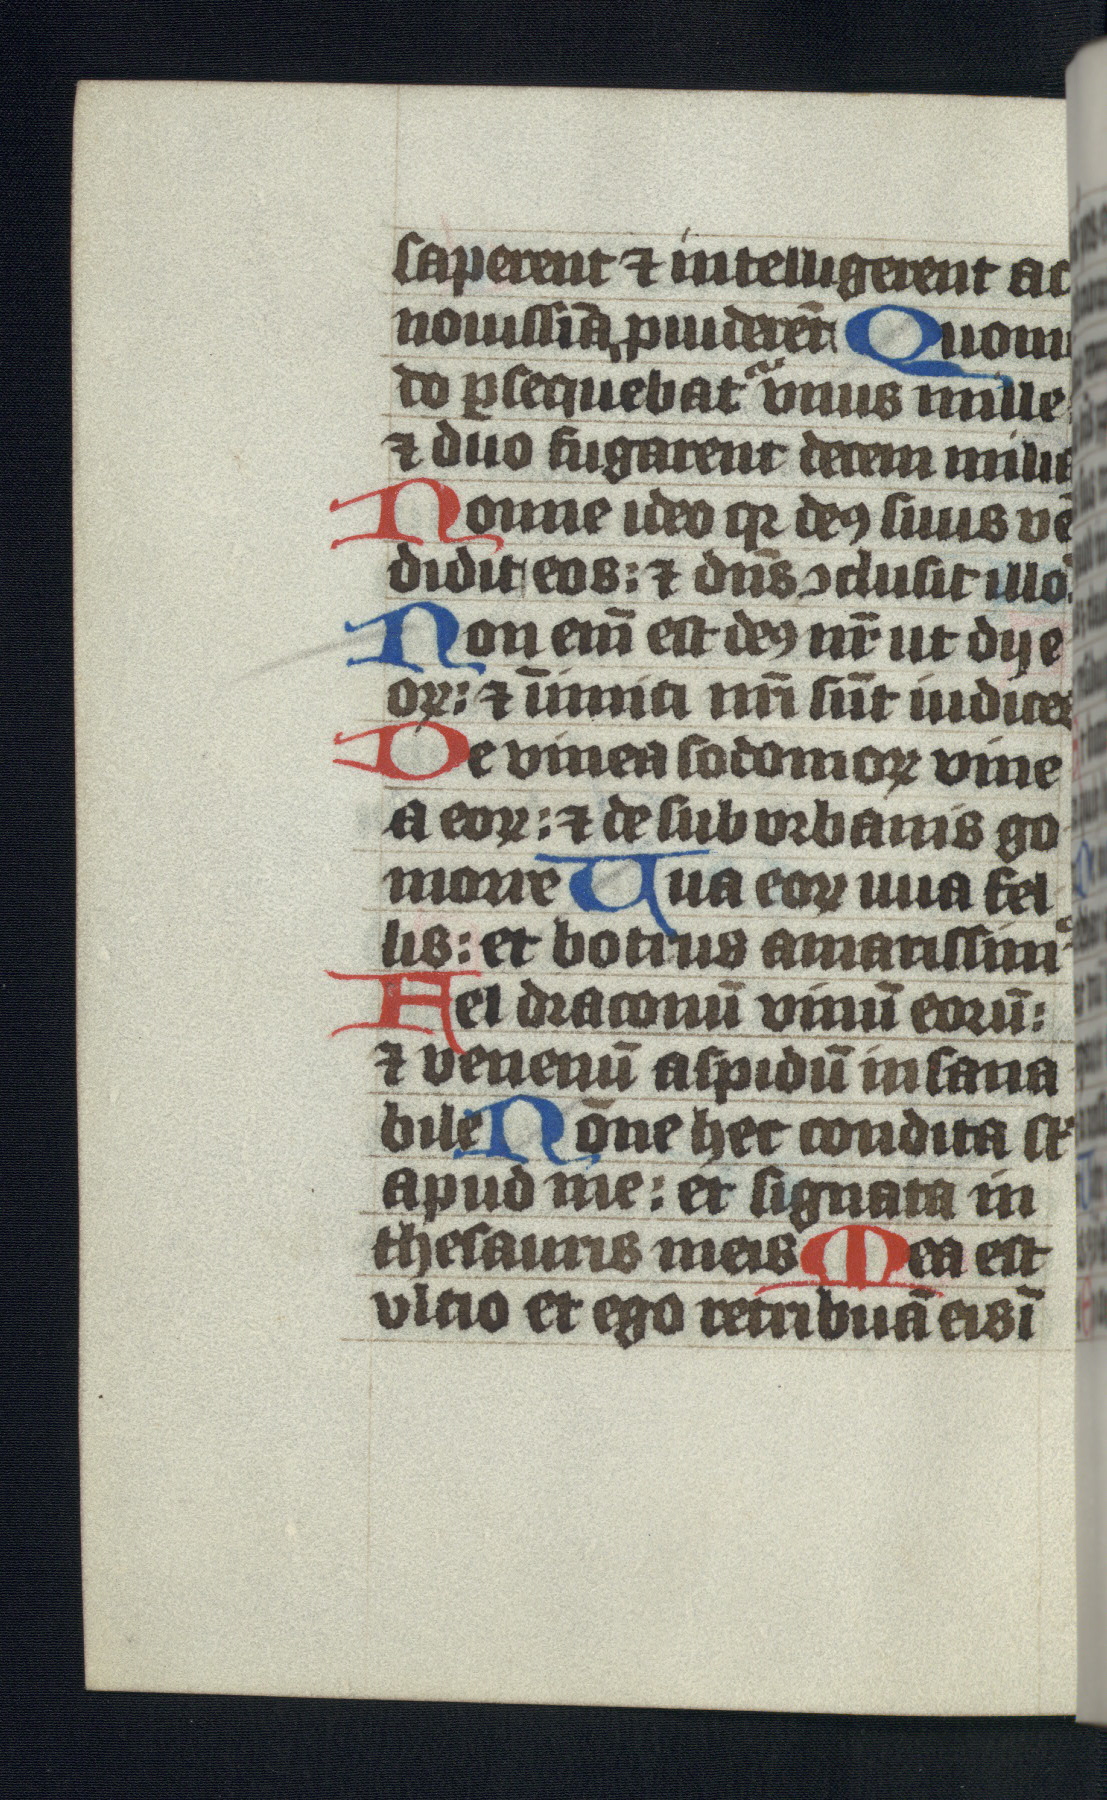 saperent ⁊ intelligerent ac
nouissīa ꝓuiderēt Quomo
do ꝑsequebatᷣ vnus mille
⁊ duo fugarent decem milia
Nonne ideo qꝛ deꝰ suus vē
didit eos: ⁊ dn̄s ↄclusit illos
Non em̄ est deꝰ nr̄ ut dij e
oꝝ: ⁊ īimici nr̄i sūt iudices
De vinea sodomoꝝ vine
a eoꝝ: ⁊ de suburbanis go
morre Uua eoꝝ uua fel
lis: et botrus amarissimꝰ
Fel draconū vinū eorū:
⁊ venenū aspidū insana
bile Nōne hec condita sт̄
apud me: et signata in
thesauris meis Mea est
vltio et ego retribuā eis ī